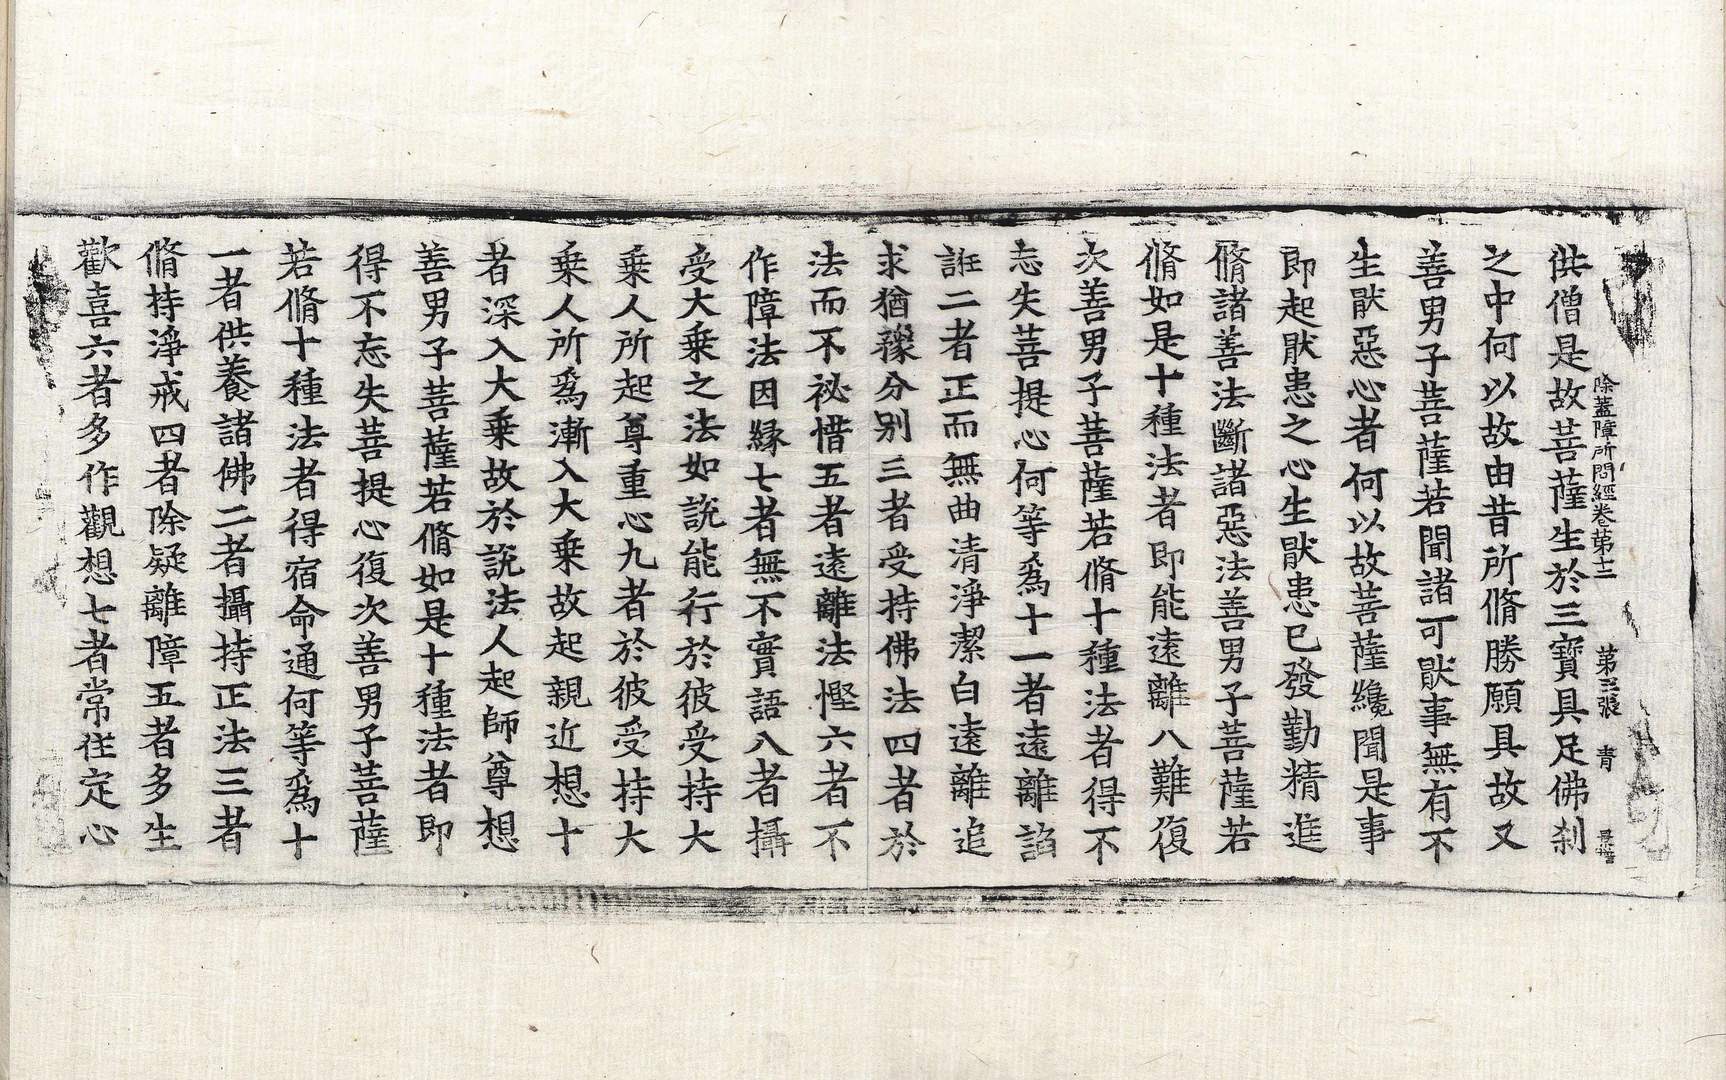 除蓋障所問經卷第十三 第三張 青
供僧是故菩薩生於三寶具足佛刹
之中何以故由昔所脩勝願具故又
善男子菩薩若聞諸可猒事無有不
生猒惡心者何以故菩薩纔聞是事
即起猒患之心生猒患已發勤精進
脩諸善法斷諸惡法善男子菩薩若
脩如是十種法者即能遠離八難復
次善男子菩薩若脩十種法者得不
忘失菩提心何等爲十一者遠離諂
誑二者正而無曲清淨潔白遠離追
求猶豫分別三者受持佛法四者於
法而不祕惜五者遠離法慳六者不
作障法因緣七者無不實語八者攝
受大乗之法如說能行於彼受持大
乗人所起尊重心九者於彼受持大
乗人所爲漸入大乗故起親近想十
者深入大乗故於說法人起師尊想
善男子菩薩若脩如是十種法者即
得不忘失菩提心復次善男子菩薩
若脩十種法者得宿命通何等爲十
一者供養諸佛二者攝持正法三者
脩持淨戒四者除疑離障五者多生
歡喜六者多作觀想七者常住定心